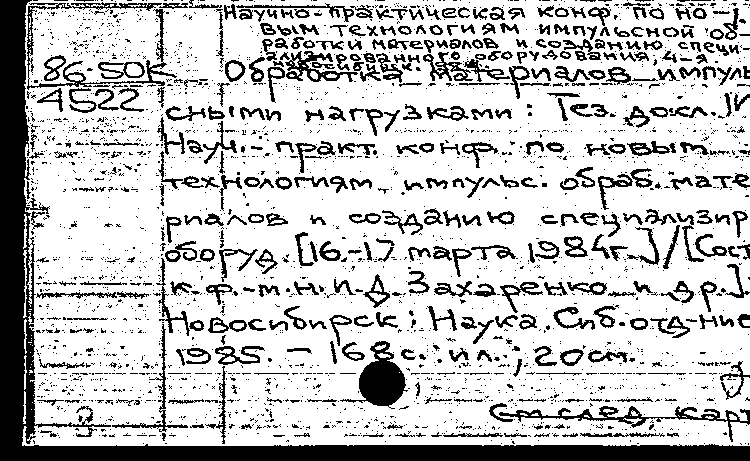 Научно-практическая конф. по но-
вым технологиям импульсной об-
работки материалов и созданию специ-
ализированного оборудования, 4-я.
Новосибирск. 1984.
86-50К Обработка материалов импуль-
4522
сными нагрузками : Тез. докл. IV
Науч.-практ. конф. по новым
технологиям импульс. обраб. мате-
риалов и созданию специализир.
оборуд. [16-17 марта 1984г.]/[Сост.
к.ф.-м.н. И.Д. Захаренко и др.].
Новосибирск : Наука. Сиб. отд-ние
1985. – 168 с. : ил. ; 20 см.
См. след. карт